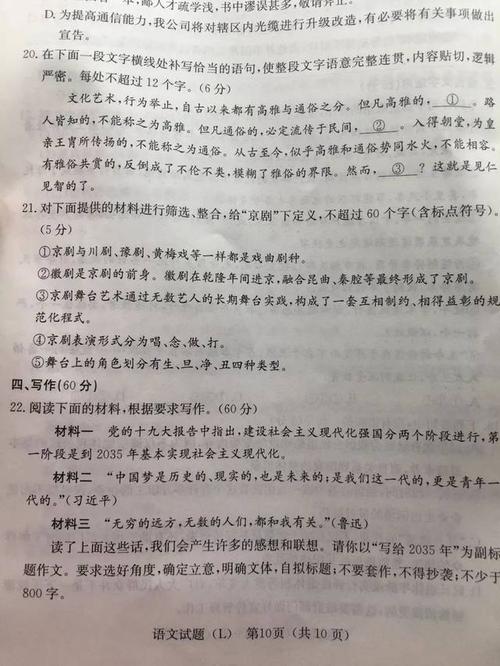 鄙人才疏学浅,书中谬误甚多,敬请斧正。
D. 为提高通信能力,我公司将对辖区内光缆进行升级改造,有必要将有关事项做出
宣告。
20. 在下面一段文字横线处补写恰当的语句,使整段文字语意完整连贯,内容贴切,逻辑
严密。每处不超过12个字。(6分)
文化艺术,行为举止,自古以来都有高雅与通俗之分。但凡高雅的, ① 。路
人皆知的,不能称之为高雅。但凡通俗的,必定流传于民间, ② 。入得朝堂,为皇
亲王胄所传扬的,不能称之为通俗。从古至今,似乎高雅和通俗势同水火,不能相容。
有雅俗共赏的,反倒成了不伦不类,模糊了雅俗的界限。然而, ③ ?这就是见仁
见智的了。
21. 对下面提供的材料进行筛选、整合,给“京剧”下定义,不超过60个字(含标点符号)。
(5分)
①京剧与川剧、豫剧、黄梅戏等一样都是戏曲剧种。
②徽剧是京剧的前身。徽剧在乾隆年间进京,融合昆曲、秦腔等最终形成了京剧。
③京剧舞台艺术通过无数艺人的长期舞台实践,构成了一套互相制约、相得益彰的规
范化程式。
④京剧表演形式分为唱、念、做、打。
⑤舞台上的角色划分有生、旦、净、丑四种类型。
四、写作(60分)
22. 阅读下面的材料,根据要求写作。(60分)
材料一 党的十九大报告中指出,建设社会主义现代化强国分两个阶段进行,第
一阶段是到2035年基本实现社会主义现代化。
材料二 “中国梦是历史的、现实的,也是未来的;是我们这一代的,更是青年一
代的。”(习近平)
材料三 “无穷的远方,无数的人们,都和我有关。”(鲁迅)
读了上面这些话,我们会产生许多的感想和联想。请你以“写给2035年”为副标
题作文。要求选好角度,确定立意,明确文体,自拟标题;不要套作,不得抄袭;不少于
800字。
语文试题(L) 第10页(共10页)